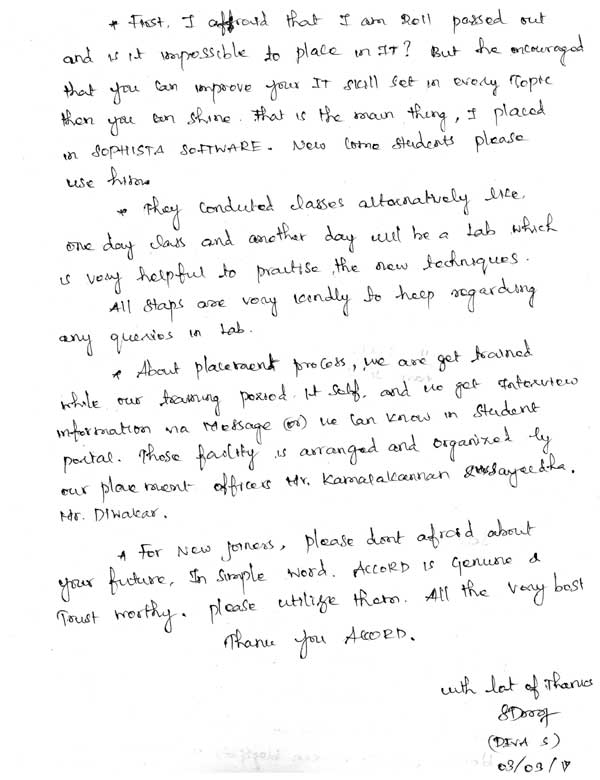 * First, I affraid that I am 2011 passed out
and is it impossible to place in IT? But he encouraged
that you can improve your IT skill set in every Topic
then you can shine. That is the main thing, I placed
in SOPHISTA SOFTWARE. New Come students please
use him.
* They conducted classes alternatively like,
one day class and another day will be a Lab which
is very helpful to practise the new techniques.
All staps are very kindly to help regarding
any queries in Lab.
* About placement process, we are get trained
while our training period it self, and we get Interview
information via Message (or) we can know in student
portal. Those facility is arranged and organized by
our placement officers Mr. Kamalakannan & Sayeedha.
Mr. Diwakar.
* For New joiners, please dont afraid about
your future, In simple word. ACCORD is Genuine &
Trust worthy. please utilize them. All the very best
Thank you ACCORD.
with lot of Thanks
(DIVA S)
03/03/17